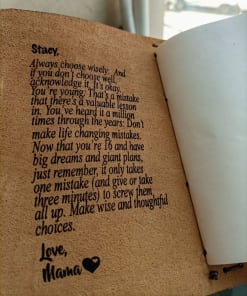 Stacy,
Always choose wisely. And
if you don't choose well,
acknowledge it. It's okay.
You're young. That's a mistake
that there's a valuable lesson
in. You've heard it a million
times through the years: Don't
make life changing mistakes.
Now that you're 16 and have
big dreams and giant plans,
just remember, it only takes
one mistake (and give or take
three minutes) to screw them
all up. Make wise and thoughtful
choices.
Love,
Mama